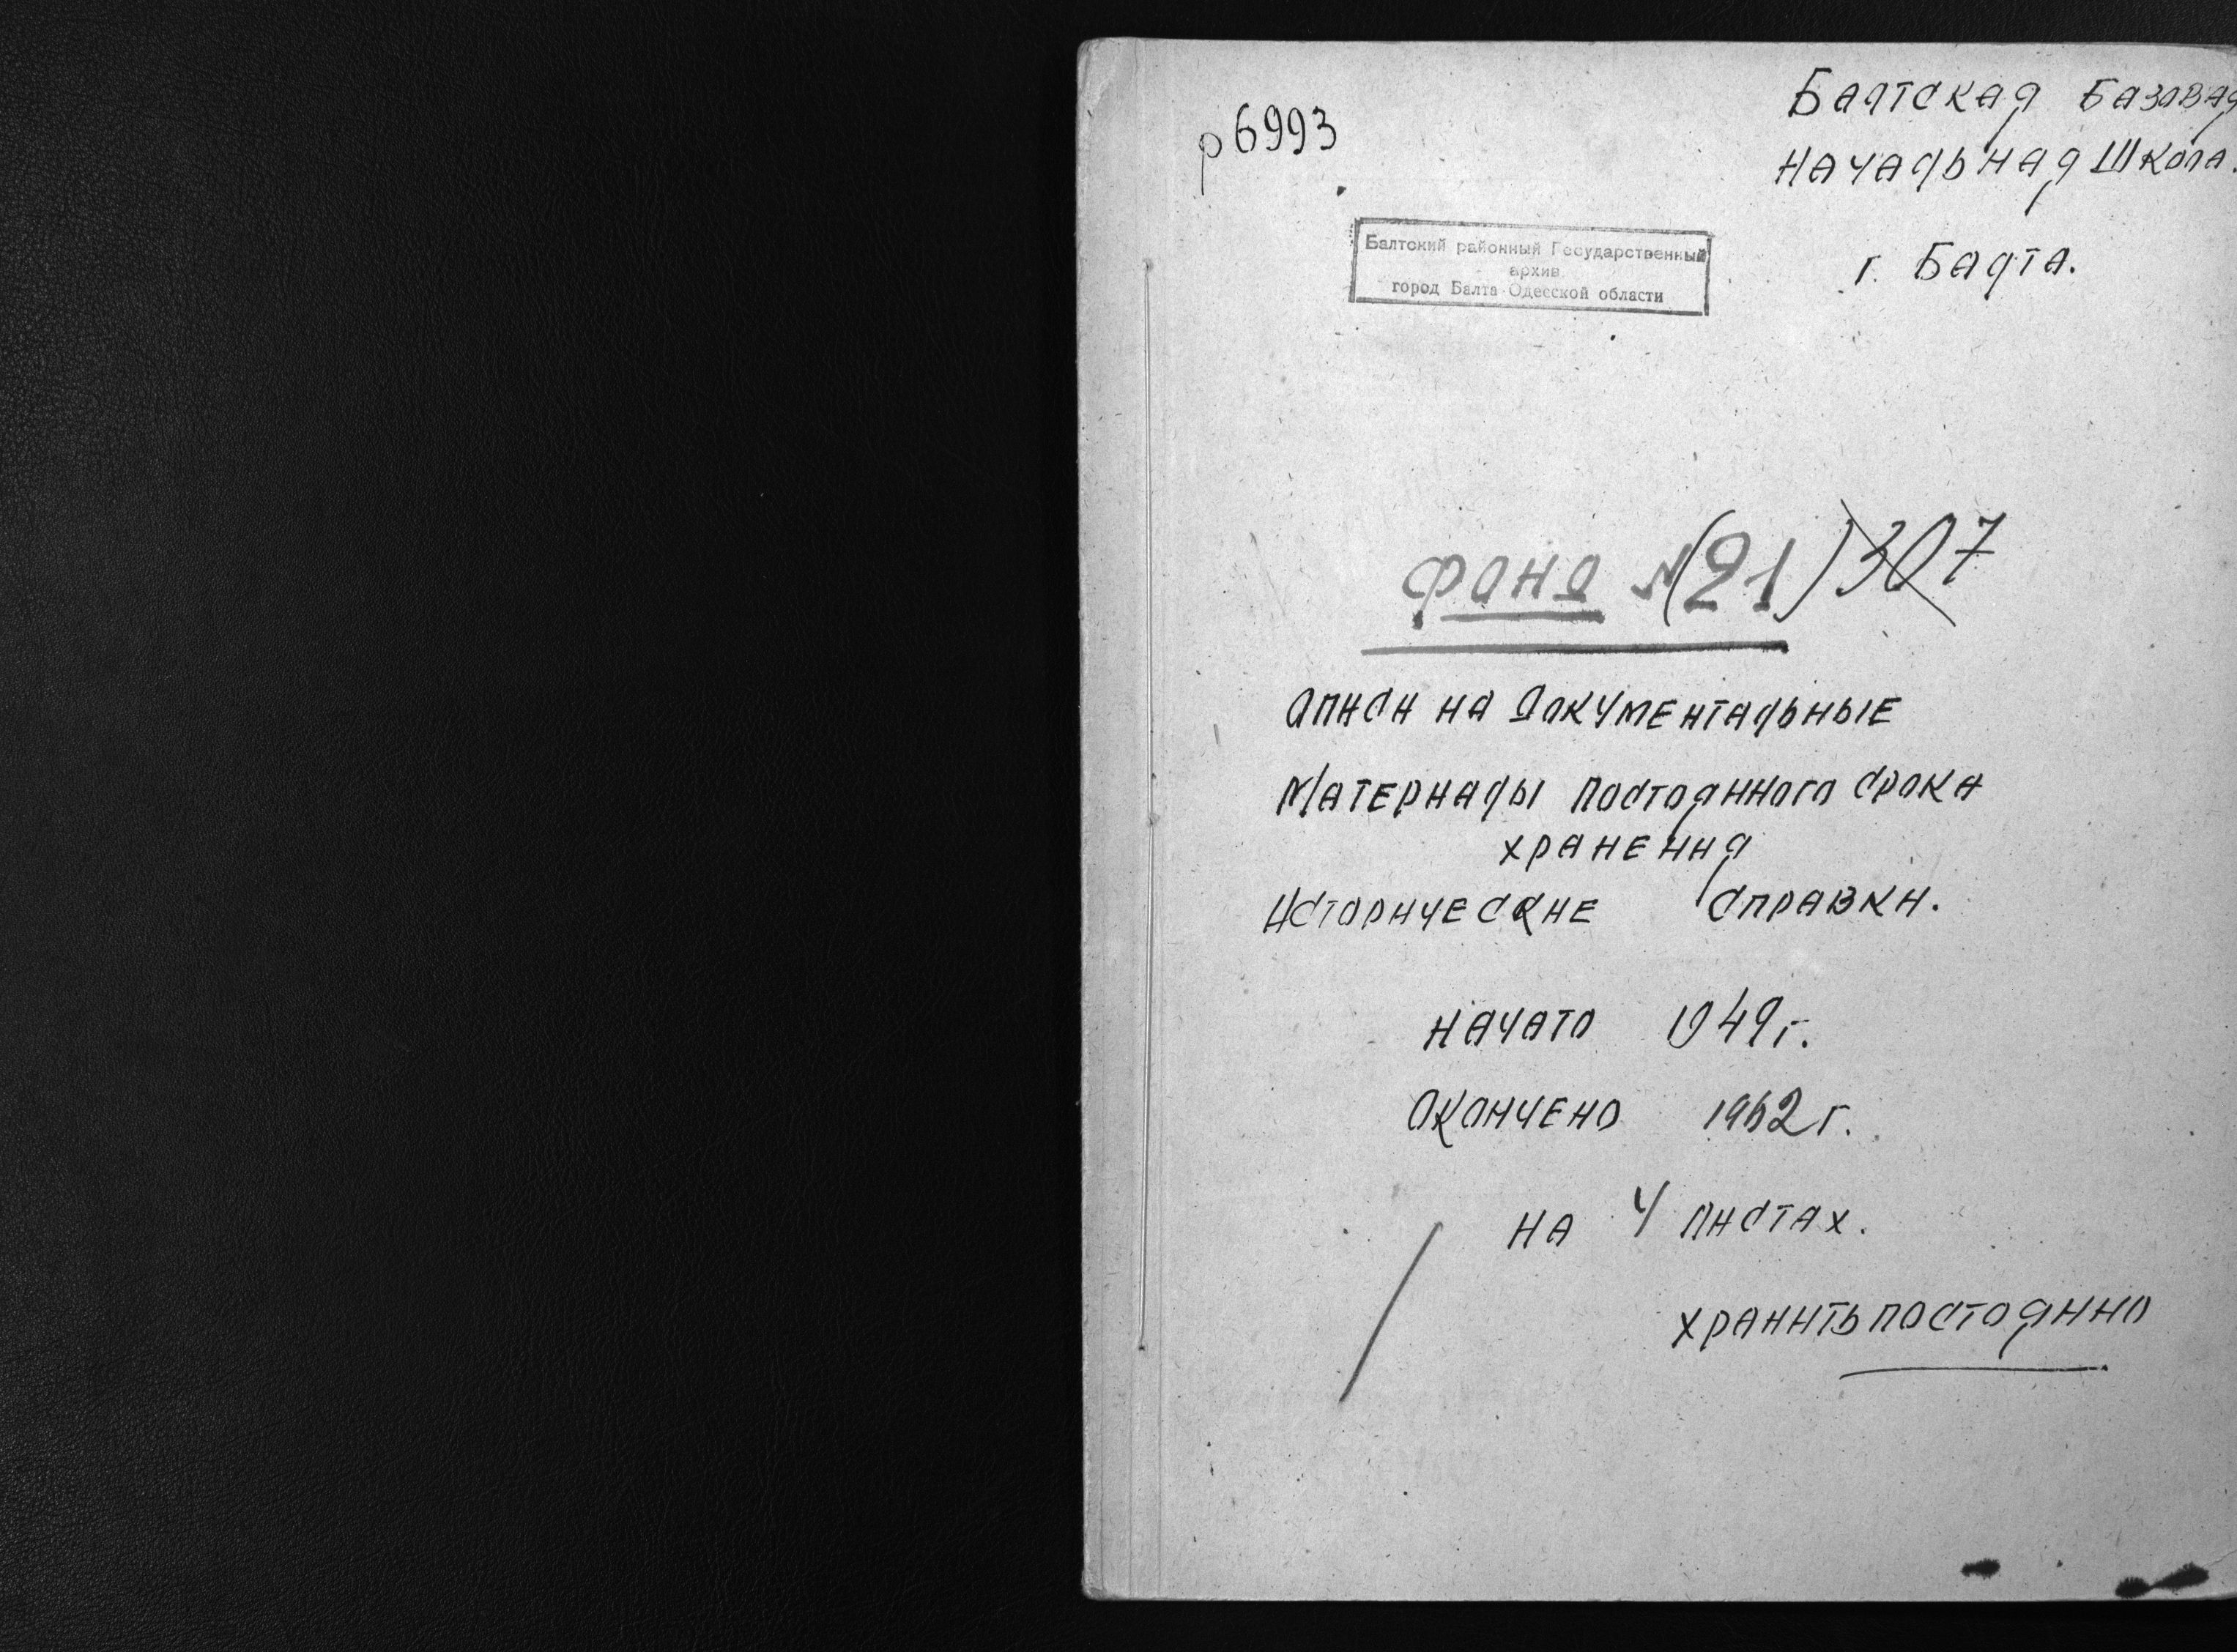 р6993
Балтская Базовая
Начальная Школа.
г. Балта.
Балтский районный Государственный
архив
город Балта Одесской области
Фонд №(21) 307
Описи на документальные
материалы постоянного срока
хранения
Исторические справки.
Начато 1949 г.
Окончено 1962 г.
На 4 листах.
Хранить постоянно